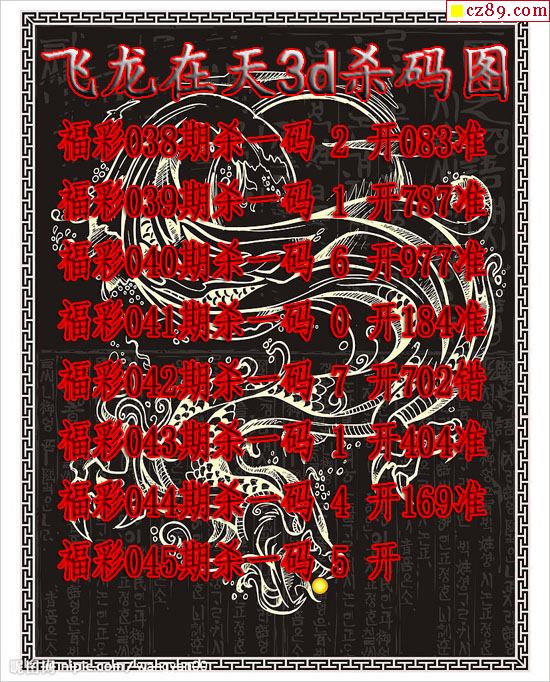 cz89.com
飞龙在天3d杀码图
福彩038期杀一码 2 开083准
福彩039期杀一码 1 开787准
福彩040期杀一码 6 开977准
福彩041期杀一码 0 开184准
福彩042期杀一码 7 开702错
福彩043期杀一码 1 开404准
福彩044期杀一码 4 开169准
福彩045期杀一码 5 开